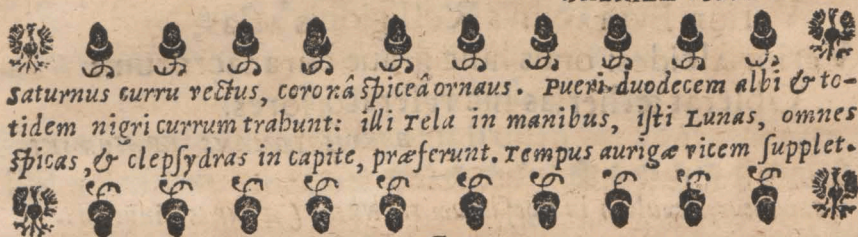 Saturnus curru vectus, coronâ spiceâ ornaus. Pueri duodecem albi & to-
tidem nigri currum trahunt: illi Tela in manibus, isti Lunas, omnes
spicas, & clepsydras in capite, præferunt. Tempus aurigæ vicem supplet.